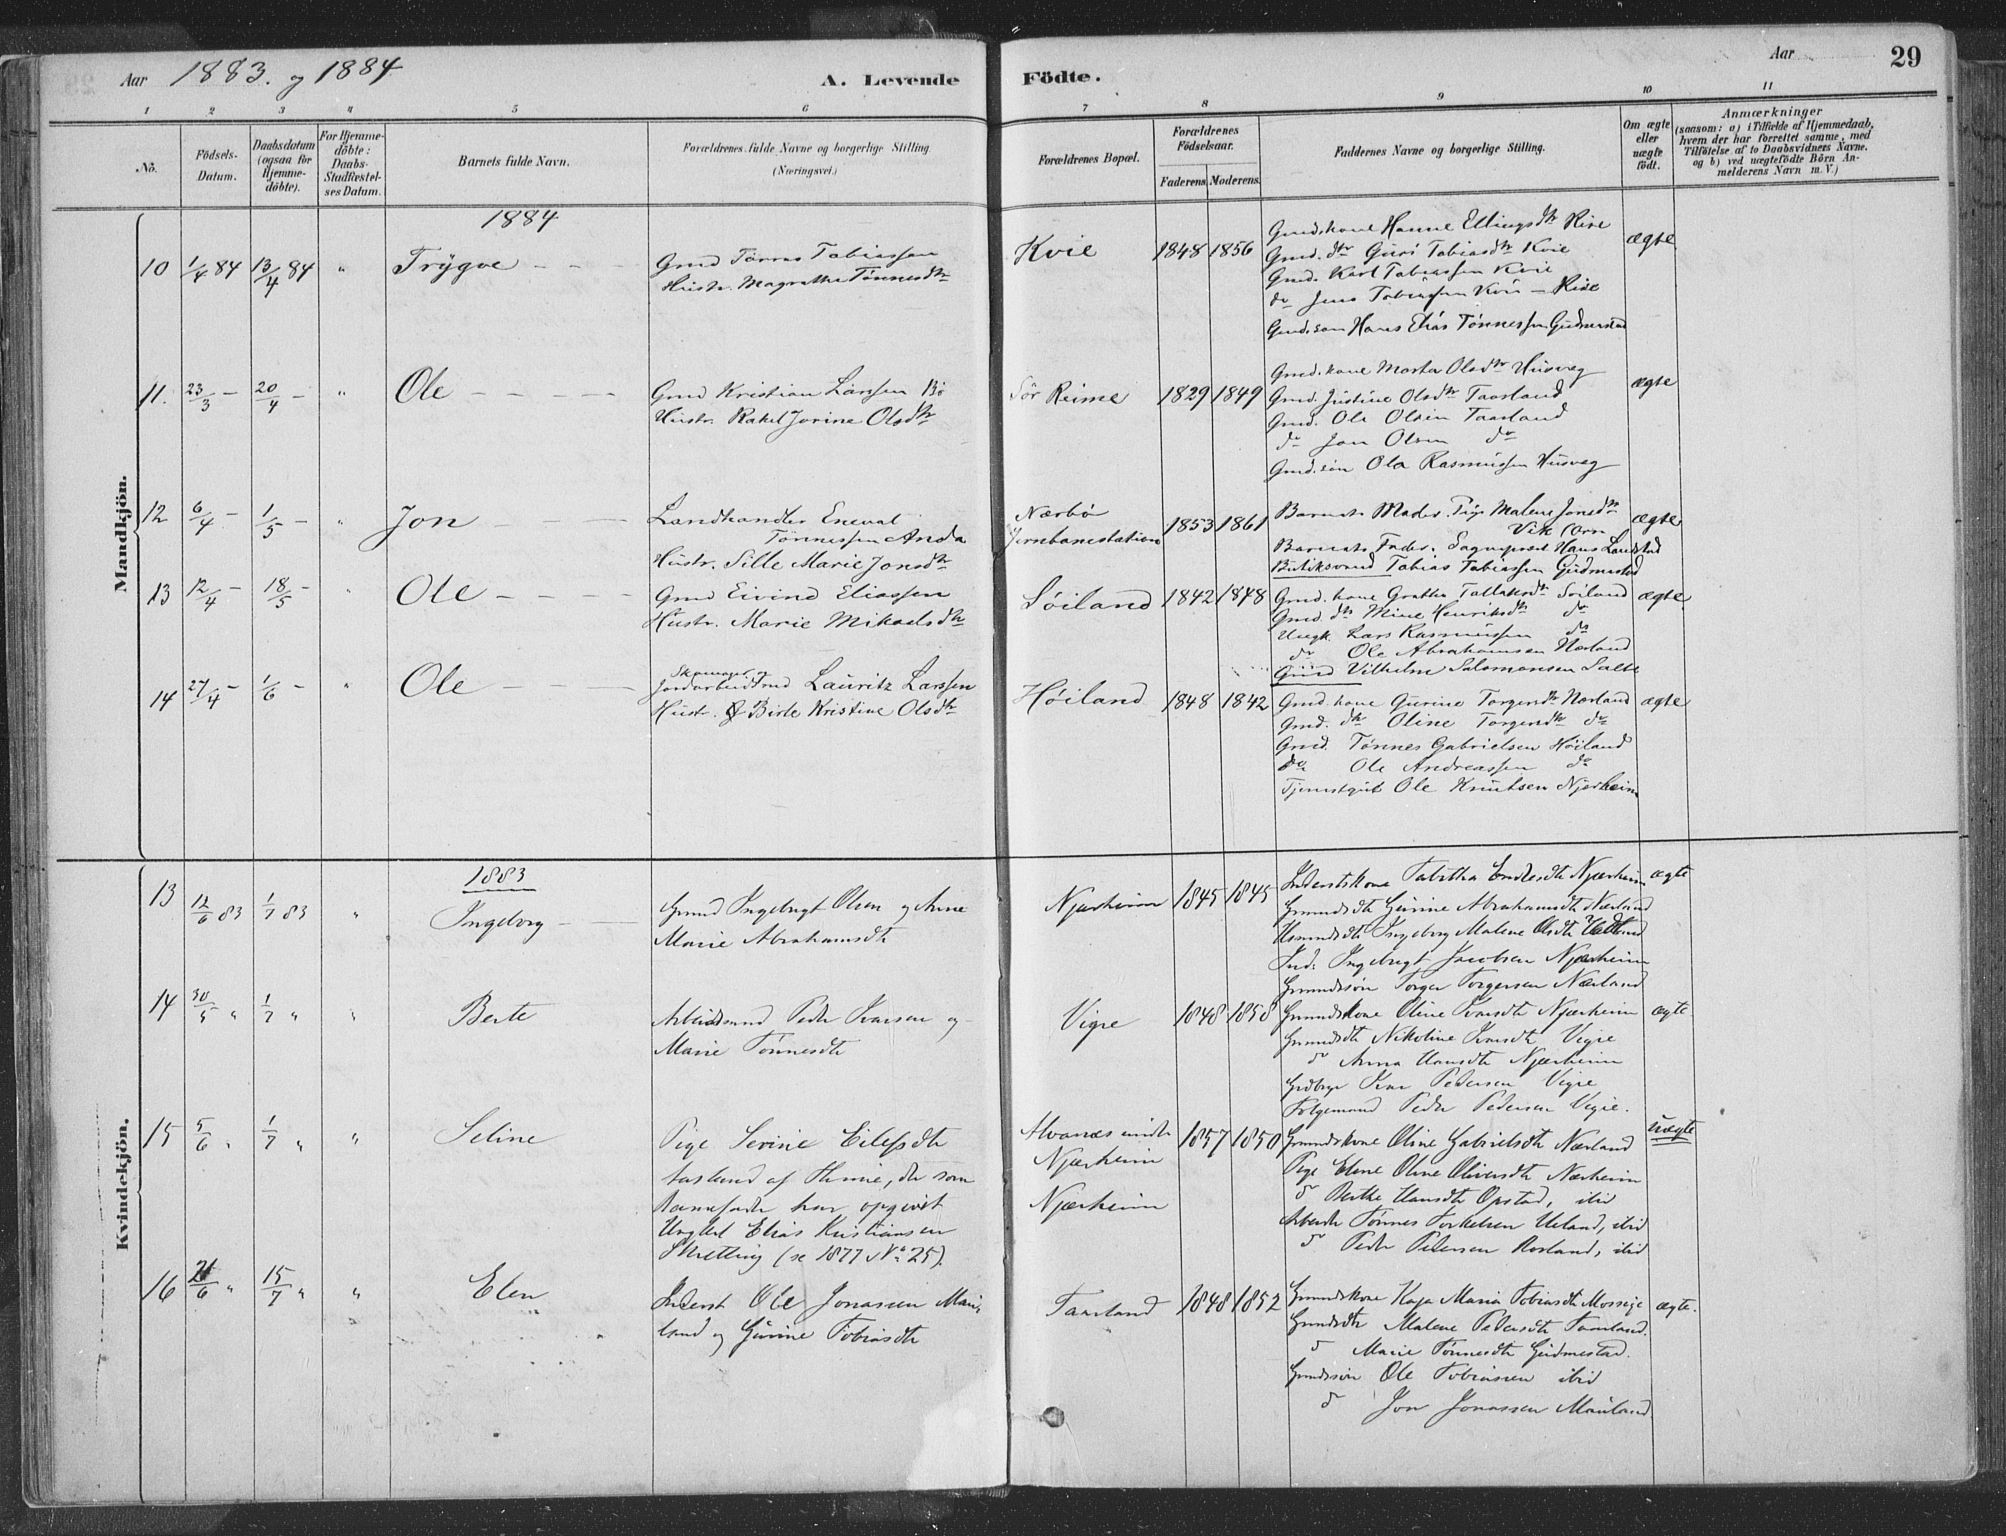 Aar 1883. og 1884
A. Levende Födte.
Aar
29
1 2 3 4 5 6 7 8 9 10 11
No.
Födsels-Datum.
Daabsdatum (ogsaa for Hjemmedöbte).
For Hjemmedöbte: Daabs-Stadfæstelses Datum.
Barnets fulde Navn.
Forældrenes fulde Navne og borgerlige Stilling (Næringsvei.)
Forældrenes Bopæl.
Forældrenes Födselsaar.
Faderens. Moderens.
Faddernes Navne og borgerlige Stilling.
Om ægte eller uægte födt.
Anmærkninger
(saasom: a) i Tilfælde af Hjemmedaab, hvem der har forrettet samme, med Tilföielse af to Daabsvidners Navne. og b) ved uægtefödte Börn Anmelderens Navn m. V.)
Mandkjön.
1884
10 1/4 84 13/4 84 " Trygve
Gmd Törres Tobiassen
Hustr. Magrethe Tönnesdtr
Kvie 1848 1856
Gmd.kone Hanne Ellingsdtr Rise
Gmd. dtr Guri Tobiasdtr Kvie
Gmd. Karl Tobiassen Kvie
do Jens Tobiassen Kvie - Rise
Gmd.søn Hans Elias Tønnessen Gudmestad
ægte
11. 23/3 - 20/4 - " Ole
Gmd Kristian Larsen Bö
Hustr. Rakel Jorine Olsdtr
Sör Reime 1829 1849
Gmd.kone Marta Olsdtr Husveg
Gmd. Justine Olsdtr Taarland
Gmd. Ole Olsen Taarland
do Jon Olsen do
Gmd.søn Ola Rasmussen Husveg
ægte
12 6/4 - 1/5 - " Jon
Landhandler Enevat
Tönnessen Anda
Hustr. Sille Marie Jonsdtr
Nærbö
Jernbanestation 1853 1861
Barnets Moder. Pige Malene Jonsdtr
Vik
Barnets Fader. Hans Landstad
Butiksvend Tobias Tobiassen Gudmestad
ægte
13 12/4 - 18/5 - " Ole
Gmd Eivind Eliassen
Hustr. Marie Mikaelsdtr
Søiland 1842 1848
Gmd. kone Gratha Tollaksdtr Søiland
Gmd. dtr Mine Henriksdtr do
Ungk. Lars Rasmussen do
do Ole Abrahamsen Nærland
Gmd Vilhelm Salomonsen Salte
ægte
14 27/4 - 1/6 - " Ole
Skomager og
Jordarbeid Lauritz Larssen
Hustr. Birte Kristine Olsdtr
Høiland 1848 1842
Gmd. kone Gurine Torgersdtr Nærland
Gmd. dtr Oline Torgersdtr do
Gmd. Tønnes Gabrielsen Høiland
do Ole Andreassen do
Tjenestgut Ole Knutsen Njærheim
ægte
Kvindekjön.
1883
13 12/6 83 1/7 83 " Ingeborg
Gmd Ingebrigt Olsen og Anne
Marie Abrahamsdtr
Njærheim 1845 1845
Inderstskone Tabitha Endresdtr Njærheim
Grundsdtr Gurine Abrahamsdtr Nærland
Ingeborg Malene Olsdtr
Ind: Ingebrigt Jacobsen Njærheim
Grundssøn Torger Torgersen Nærland
ægte
14 30/5 " 1/7 " " Berte
Arbeidsmd Peder Ivarsen og
Marie Tønnesdtr
Vigre 1848 1858
Grundskone Oline Ivarsdtr Njærheim
Grundsdtr Nikoline Ivarsdtr Vigre
do Anna Hansdtr Njærheim
Grdbrgr Ivar Pedersen Vigre
Følgemand Peder Pedersen Vigre.
ægte
15 5/6 " 1/7 " " Seline
Pige Serine Eilefsdtr
Aasland af Hinne, der som
Barnefader har opgivet
Ungkl Elias Kristiansen
Skretting (se 1877 No 25).
Njærheim
Njærheim 1857 1850
Grundskone Oline Gabrielsdtr Nærland
Pige Elene Oline Oliversdtr Nærheim
do Berthe Hansdtr Opstad, ibid
Arbeidr Tønnes Torkelsen Ueland, ibid
do Peder Pedersen Rosland, ibid
uægte
16 21/6 " 15/7 " " Elen
Inderst Ole Jonassen Mau-
land og Gurine Tobiasdtr
Taarland 1848 1852
Grundskone Kaja Maria Tobiasdtr Mossige
Grundsdtr Malene Pedersdtr Taarland.
do Marie Tønnesdtr Gudmestad.
Grundssøn Ole Tobiassen ibid
do Jon Jonassen Mauland.
ægte.